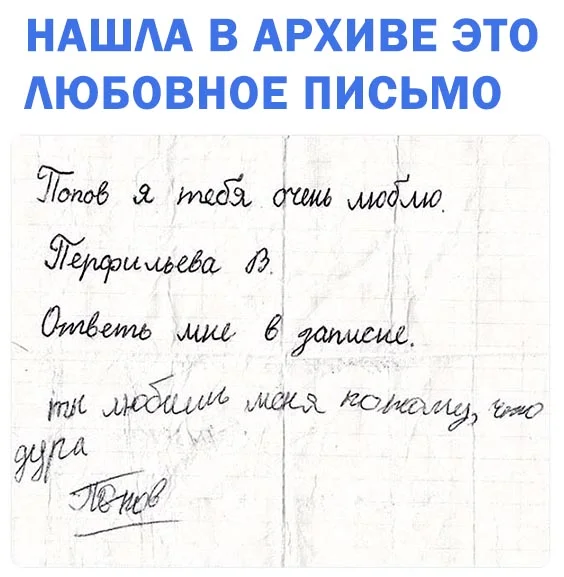 НАШЛА В АРХИВЕ ЭТО
ЛЮБОВНОЕ ПИСЬМО
Попов я тебя очень люблю.
Перфильева В.
Ответь мне в записке.
ты любишь меня потому, что
дура
Попов